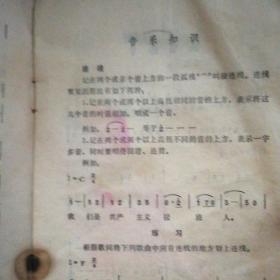 音乐知识
连线
记在两个或多个音上方的一段弧线“⌒”叫做连线。连线
常见的用法有如下两种:
1.记在两个或两个以上高低相同的音的上方,表示将这
几个音的时值相加,唱成一个音。
例如, 等于
2.记在两个或两个以上高低不同的音的上方,表示一字
多音,同时要唱得圆滑、连贯。
例如:
1=C
我们是共产主义接班人
练习
根据歌词将下列歌曲中需连线的地方划上连线。
1=F